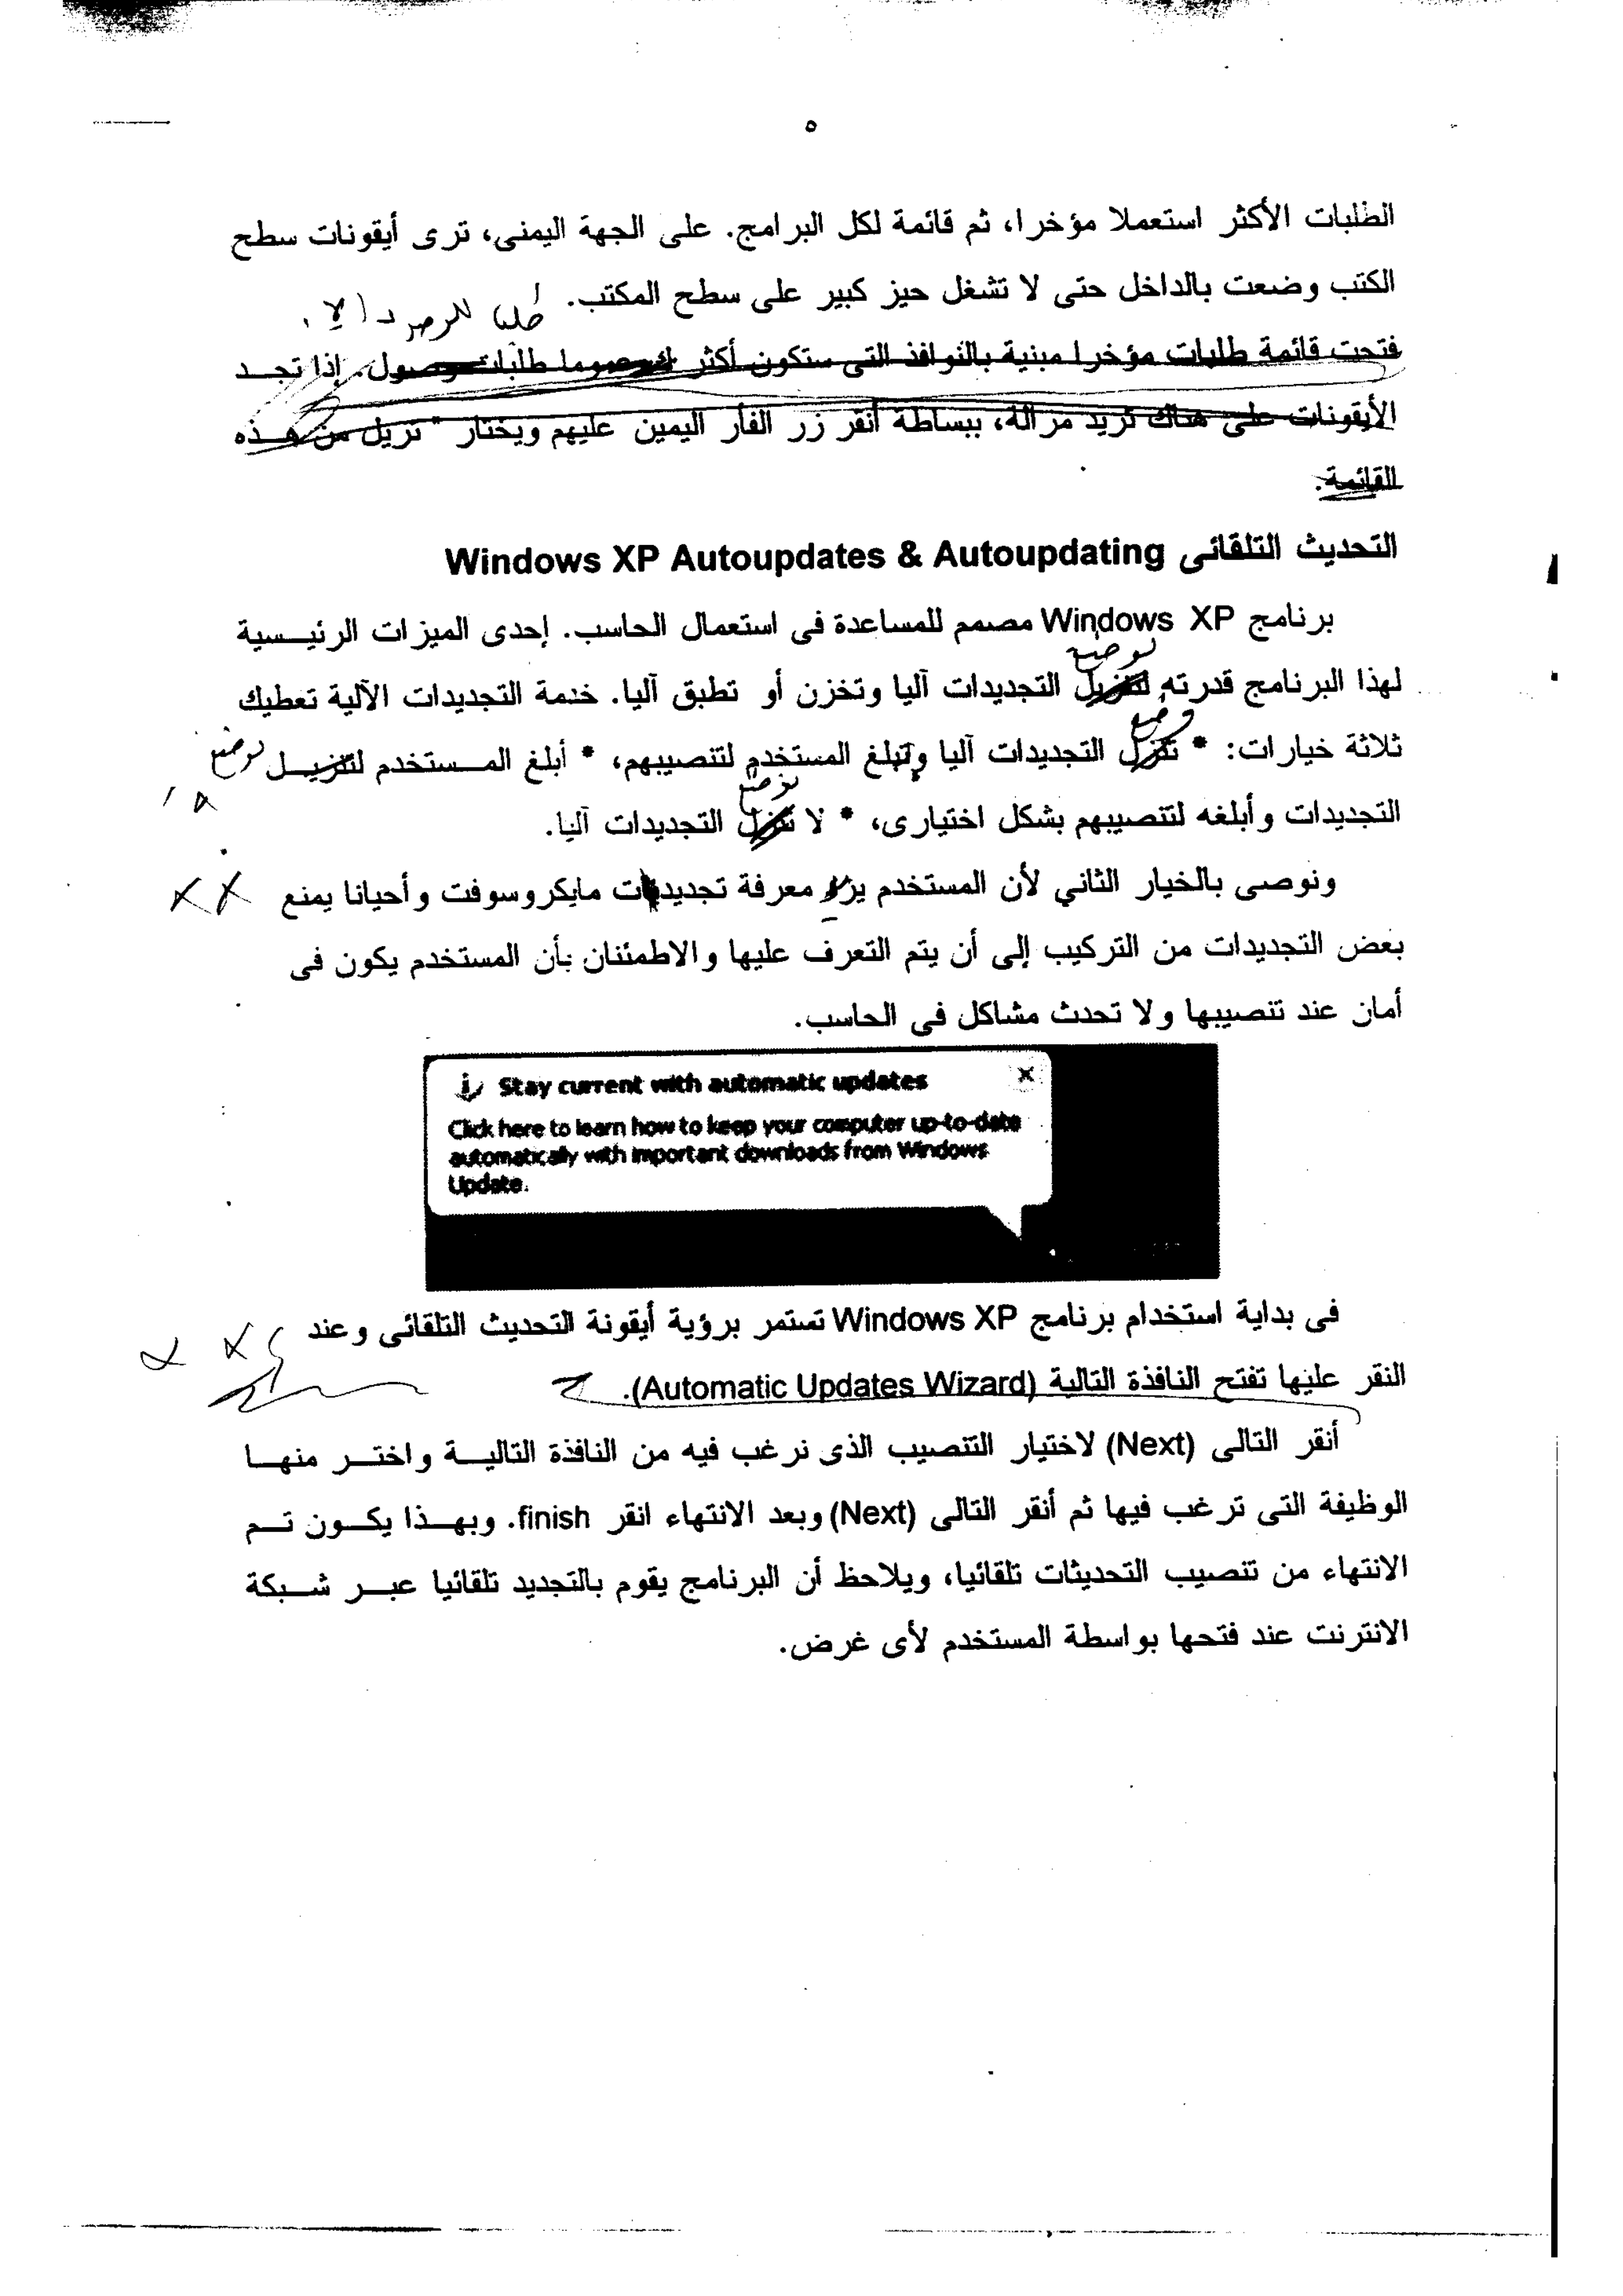 ٥
الطلبات الأكثر استعملا مؤخرا، ثم قائمة لكل البرامج. على الجهة اليمنى، ترى أيقونات سطح
الكتب وضعت بالداخل حتى لا تشغل حيز كبير على سطح المكتب.
فتحت قائمة طلبات مؤخرا مبنية بالنوافذ التى ستكون أكثر طلبات وصول. إذا تجد
الأيقونات على هناك تريد مزالة، ببساطة أنقر زر الفأر اليمين عليهم ويختار " تزيل من هذه
القائمة.
التحديث التلقائى Windows XP Autoupdates & Autoupdating
برنامج Windows XP مصمم للمساعدة فى استعمال الحاسب. إحدى الميزات الرئيسية
لهذا البرنامج قدرته لتنزيل التجديدات آليا وتخزن أو تطبق آليا. خدمة التجديدات الآلية تعطيك
ثلاثة خيارات: * تنزل التجديدات آليا وتبلغ المستخدم لتنصيبهم، * أبلغ المستخدم لتنزيل
التجديدات وأبلغه لتنصيبهم بشكل اختيارى، * لا تنزل التجديدات آليا.
ونوصى بالخيار الثاني لأن المستخدم معرفة تجديدات مايكروسوفت وأحيانا يمنع
بعض التجديدات من التركيب إلى أن يتم التعرف عليها والاطمئنان بأن المستخدم يكون فى
أمان عند تنصيبها ولا تحدث مشاكل فى الحاسب.
Stay current with automatic updates
Click here to learn how to keep your computer up-to-date
automatically with important downloads from Windows
Update.
فى بداية استخدام برنامج Windows XP تستمر برؤية أيقونة التحديث التلقائى وعند
النقر عليها تفتح النافذة التالية (Automatic Updates Wizard).
أنقر التالى (Next) لاختيار التنصيب الذى نرغب فيه من النافذة التالية واختر منها
الوظيفة التى ترغب فيها ثم أنقر التالى (Next) وبعد الانتهاء انقر finish. وبهذا يكون تم
الانتهاء من تنصيب التحديثات تلقائيا، ويلاحظ أن البرنامج يقوم بالتجديد تلقائيا عبر شبكة
الانترنت عند فتحها بواسطة المستخدم لأى غرض.